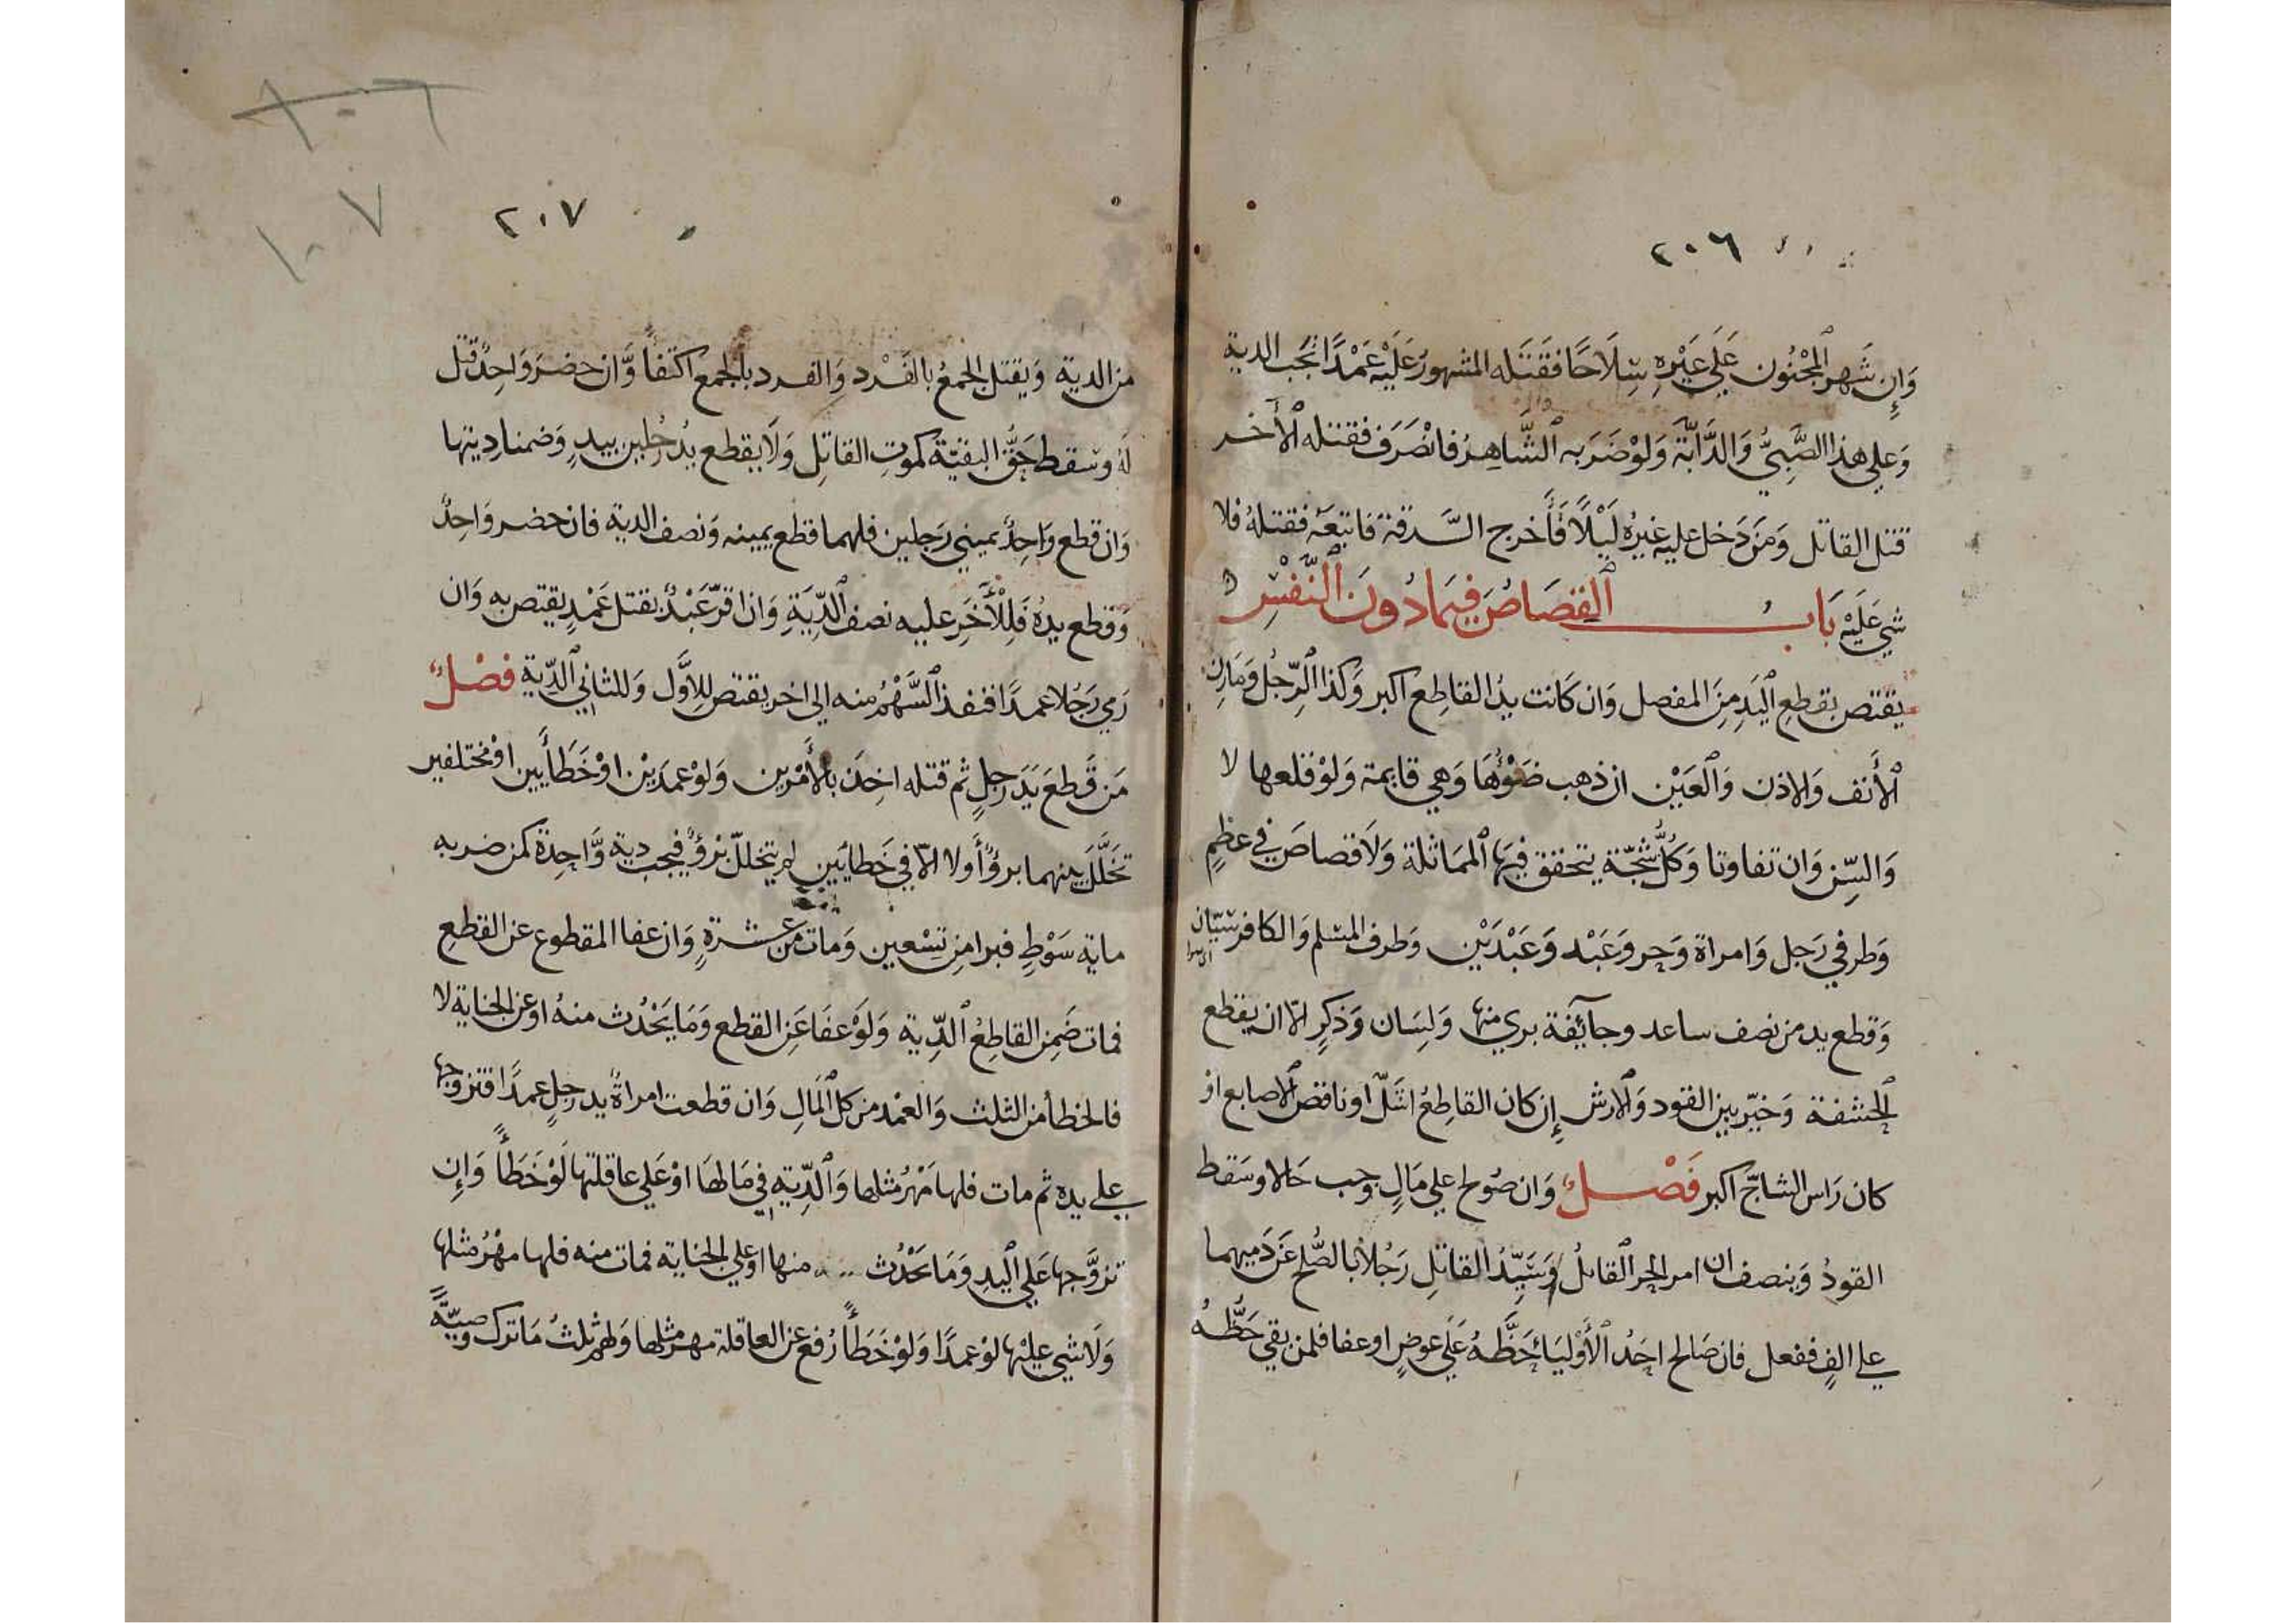 ٢٠٦
وَاِن شَهر المجْنُون عَلَي غَيْرِهِ سِلَاحًا فقَتَله المشهورُ عَلَيْه عَمْدًا تجَب الدية
وَعلي هذا الصَّبِيُّ وَالدَّابَّة وَلوْ ضَرَبه الشَّاهِرُ فانْصَرَف فقتله الأخر
قتل القاتل وَمَن دَخل عليه غيرُه لَيْلًا فَأخرج السَّرقة فاتبعَهُ فقتلهُ فلا
شي عَلَيْه بَاب القصَاصُ فيمَا دُونَ النَّفْسِ
يقتص بقطعِ اليَدِ مِنَ المفصل وَان كَانت يدُ القاطِع اكبر وَكذا الرِّجُل وَمَارِن
الأَنف وَالاذن وَالعَيْن ان ذهب ضَوْؤُهَا وَهي قايمة وَلوْ قلعها لا
وَالسِّن وَان تفاوتا وَكلُّ شَجّة يتحقق فيهَا المَماثلة وَلَا قصاصَ في عظمٍ
وَطرفي رَجل وَامراة وَحر وَعَبْد وَعَبْدَيْن وَطرف المسْلم وَالكافر سيّان
وَقطع يد من نصف ساعد وجائفة بري منها وَلِسَان وَذكرٍ الّا ان يقطع
الحشفة وَخيّر بين القود وَالارش إن كان القاطِعُ اشَلّ او ناقص الاصابع اوْ
كان رَاس الشاجّ اكبر فَصْلٌ وَان صُولح علي مَالٍ وجب حَالا وسَقط
القودُ وَبنصف ان امر الحر القاتلُ وَسَيِّدُ القاتلِ رَجُلًا بالصُّلح عَن دَميهما
علي الفٍ ففعل فان صَالح احَدُ الأوْليَاء حَظَّهُ عَلَي عوضٍ او عفا فلمن بقي حَظُّهُ
٢٠٧
١٠٧
من الدية وَيقتل الجمعُ بالفَرْد وَالفرد بالجمع اكتفاً وَّان حضرَ وَاحِدٌ قتل
لَهُ وسقط حَقُّ البقيّة كموتِ القاتِل وَلَا يقطع يدُ رجُلين بيدٍ وَضمنا ديتها
وَان قطع وَاحِدٌ يميني رَجلين فلهما قطع يمينه وَنصف الدية فان حضر وَاحِدٌ
وَقطع يدهُ فَلِلْأخَرِ عليه نصف الدِّيَةِ وَان اقرّ عَبْدٌ بقتل عَمْدٍ يقتص به وَان
رَمي رَجُلا عمدًا فنفذ السَّهْمُ منه الى اخر يقتص للِأوَّل وَللثاني الدِّية فصْلٌ
مَن قَطعَ يَدَ رَجلٍ ثم قتله اخِذَ بالأَمْرين وَلوْ عمدَيْن اوْ خَطأَيين اوْ مختلفين
تخَلَّلَ بينهما برؤٌ أَولا الاّ في خَطايَين لم يتخللْ برْؤٌ فيجب دية وَّاحِدة كمن ضربه
ماية سَوْطٍ فبرا مِن تِسْعين وَمات من عشرةٍ وَان عفا المقطوع عن القطعِ
فمات ضَمِن القاطِعُ الدِّية وَلوْ عفَا عَن القطع وَمَا يَحْدُث منهُ او عن الجناية لا
فالخطأ من الثلث وَالعمْد من كل المَالِ وَان قطعت امراةٌ يد رجلٍ عمدًا فتزوجها
علي يده ثم مات فلها مَهْرُ مثلها وَالدِّية في مَالهَا اوْ عَلي عاقلتها لَوْ خَطَأً وَاِن
تزوَّجها عَلي اليدِ وَمَا يَحْدُث منها او علي الجناية فمات منه فلها مهْرُ مثلها
وَلَا شي عليْها لوْ عمدًا وَلوْ خَطَأً رُفع عن العاقلة مهر مثلها وَلهم ثلثُ مَا ترك وصيَّةً